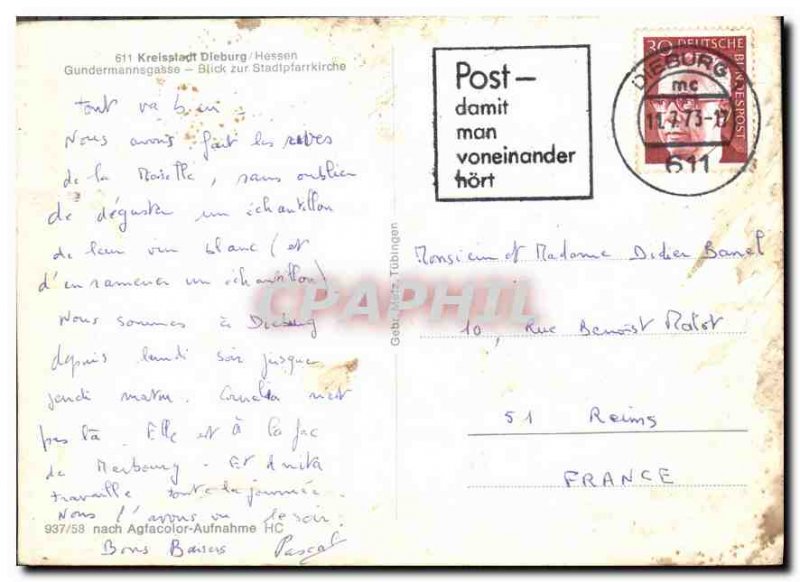 611 Kreisstadt Dieburg/Hessen
Gundermannsgasse – Blick zur Stadtpfarrkirche
tout va bien.
Nous avons fait les rives
de la Moselle, sans oublier
de déguster un échantillon
de leur vin blanc (et
d'en ramener un échantillon)
Nous sommes à Dieburg
depuis lundi soir jusque
jeudi matin. Cornelia n'est
pas là. Elle est à la fac
de Marbourg. Et Anita
travaille toute la journée.
Nous l'avons vu le soir.
937/58 nach Agfacolor-Aufnahme HC
Bons Baisers Pascal
Gebr. Metz, Tübingen
CPAPHIL
Post –
damit
man
voneinander
hört
30 DEUTSCHE
BUNDESPOST
DIEBURG
mc
11.7.73-17
611
Monsieur et Madame Didier Banel
10, Rue Benoist Malot
51 Reims
FRANCE